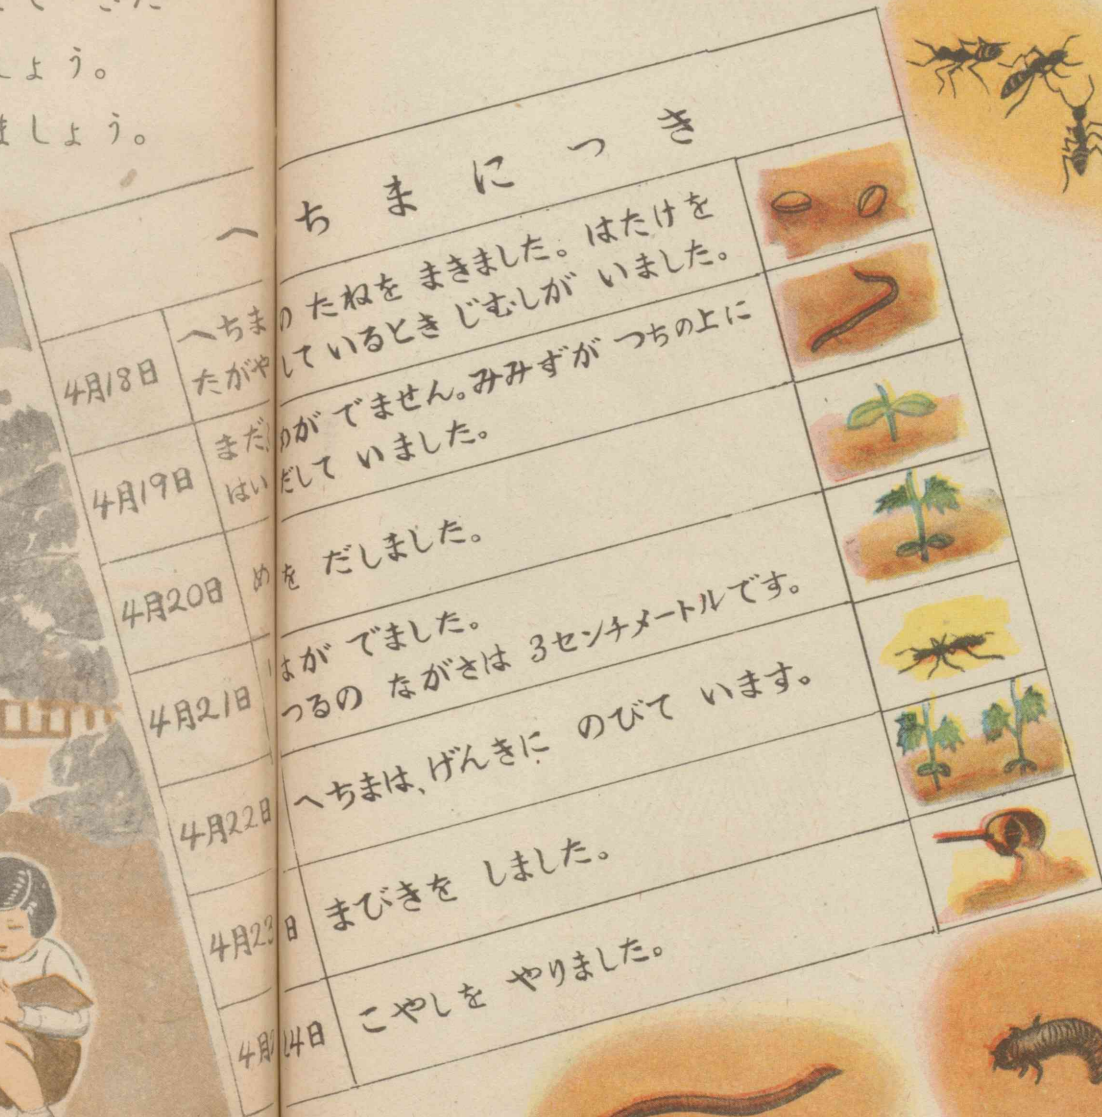 しょう。
ましょう。
へちまにつき
4月18日
へちまの たねを まきました。はたけを
たがやしているとき じむしが いました。
4月19日
まだめが でません。みみずが つちの上に
はいだして いました。
4月20日
めを だしました。
4月21日
はが でました。
つるの ながさは 3センチメートルです。
4月22日
へちまは、げんきに のびて います。
4月23日
まびきを しました。
4月24日
こやしを やりました。